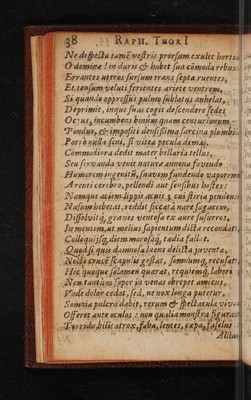 38 RAPH. THORI
Ne despecta tamē vestris prorsum exulet hortis
O domine! in duris & habet sua cōmoda rebus.
Errantes utero sursum trans septa ruentes,
Et tensum veluti ferientes ariete ventrem,
Si quando oppressus pulmo sublatus anhelat,
Deprimit, inque suas cogit descendere sedes
Ocyus, incumbens binûm quam centurionum
Pondus, & impositi densissima sarcina plumbi.
Porrò nulla seni, si vitæ pocula demas,
Commodiora dedit mater bellaria tellus,
Seu servanda venit naturæ annona fovendo
Humorem ingenitũ, suavem fundendo vaporem
Arenti cerebro, pellendi aut sensibus hostes:
Namque aciem lippis acuit, cui stiria pendens
Nasum hebetat, reddit siccatâ nare sagacem,
Dissolvitq́; graves ventosa ex aure susurros,
In mentem, ut melius sapientum dicta recondat.
Colloquijsq́; diem morosq́; tædia fallat.
Quod si quis damnosa senex delicta juventæ
Nocte crucē scapulis gestat, somnumq́; recusat,
Hic quoque solamen quærat, requiemq́; labori
Non tantum sopor in venas obrepet amicus,
Unde dolor cedat, sed, ne nox longa putetur,
Somnia pulcra dabit, rerum & spectacula viva
Offeret ante oculos: non qualia monstra figurant
Turgida bilis atrox, faba, lentes, cæpa, faselus